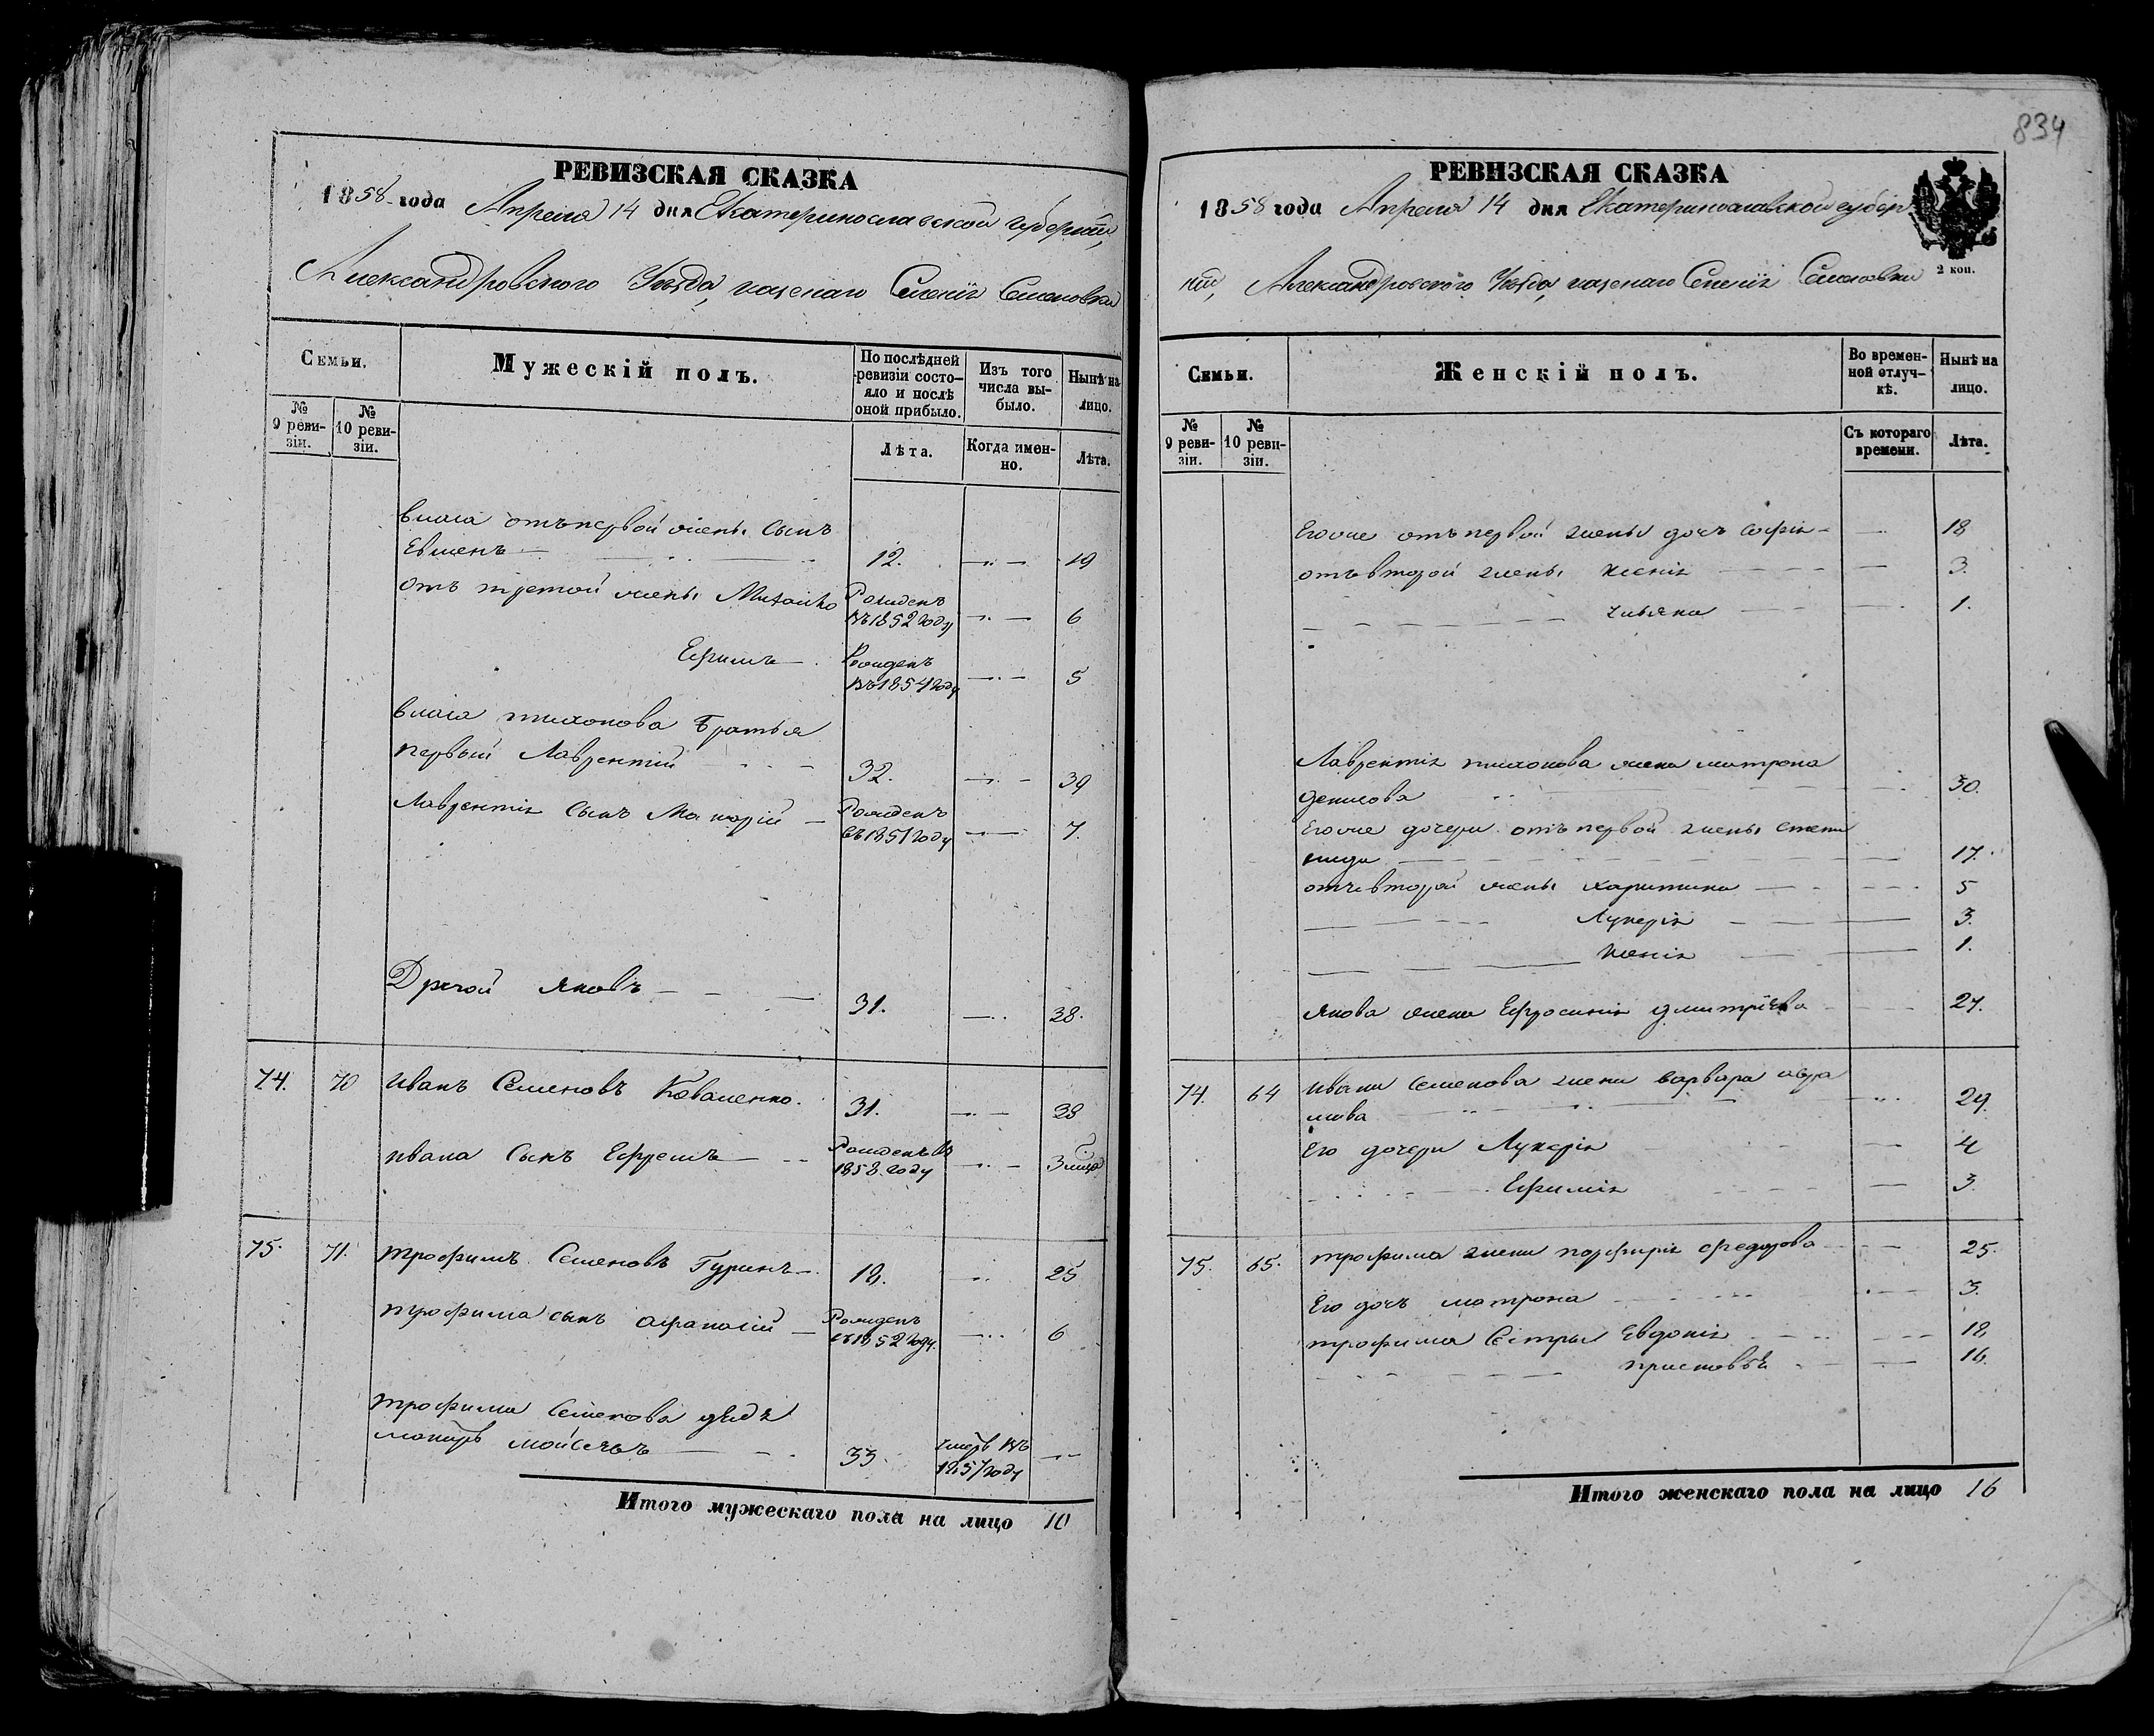 834
РЕВИЗСКАЯ СКАЗКА
1858 года Апреля 14 дня Екатеринославской губернии,
Александровского Уезда, казенаго Селенія Семеновки
Семьи.
Мужескій полъ.
По послѣдней ревизіи состояло и послѣ оной прибыло.
Изъ того числа выбыло.
Нынѣ на лицо.
№ 9 ревизіи.
№ 10 ревизіи.
Лѣта.
Когда именно.
Лѣта.
отъ первой жены сынъ
Евменъ 12. 19
отъ третой жены Михайло Рожденъ въ 1852 году 6
Ефимъ Рожденъ въ 1854 году 5
тихонова Братья
первый Лаврентій 32. 39
Лаврентія сынъ Макарій Рожденъ въ 1851 году 7.
Другой яковъ 31. 38.
74. 70 иванъ Семеновъ Коваленко. 31. 38
ивана сынъ Ефремъ Рожденъ въ 1858 году 3
75. 71. трофимъ Семеновъ Гуринъ 18. 25
трофима сынъ афанасій Рожденъ въ 1852 году. 6
трофима Семенова дядя
мойсеевъ 33. умеръ въ 1857 году
Итого мужескаго пола на лицо 10
РЕВИЗСКАЯ СКАЗКА
2 коп.
1858 года Апреля 14 дня Екатеринославской губер
ніи, Александровского Уезда, казенаго Селенія Семеновки
Семьи.
Женскій полъ.
Во временной отлучкѣ.
Нынѣ на лицо.
№ 9 ревизіи.
№ 10 ревизіи.
Съ котораго времени.
Лѣта.
Егоже отъ первой жены дочь софія 18
отъ второй жены ксенія 3.
ульяна 1.
Лаврентія тихонова жена матрона
денисова 30.
Егоже дочери отъ первой жены степа
нида 17.
отъ второй жены харитина 5
Лукерія 3.
ксенія 1.
якова жена Ефросинія дмитріева 27.
74. 64 ивана Семенова жена варвара авра
мова 29.
Его дочери Лукерія 4
Ефимія 3.
75. 65. трофима жена порфирія федорова 25.
Его дочь матрона 3.
трофима Сестры Евдокія 18
16.
Итого женскаго пола на лицо 16